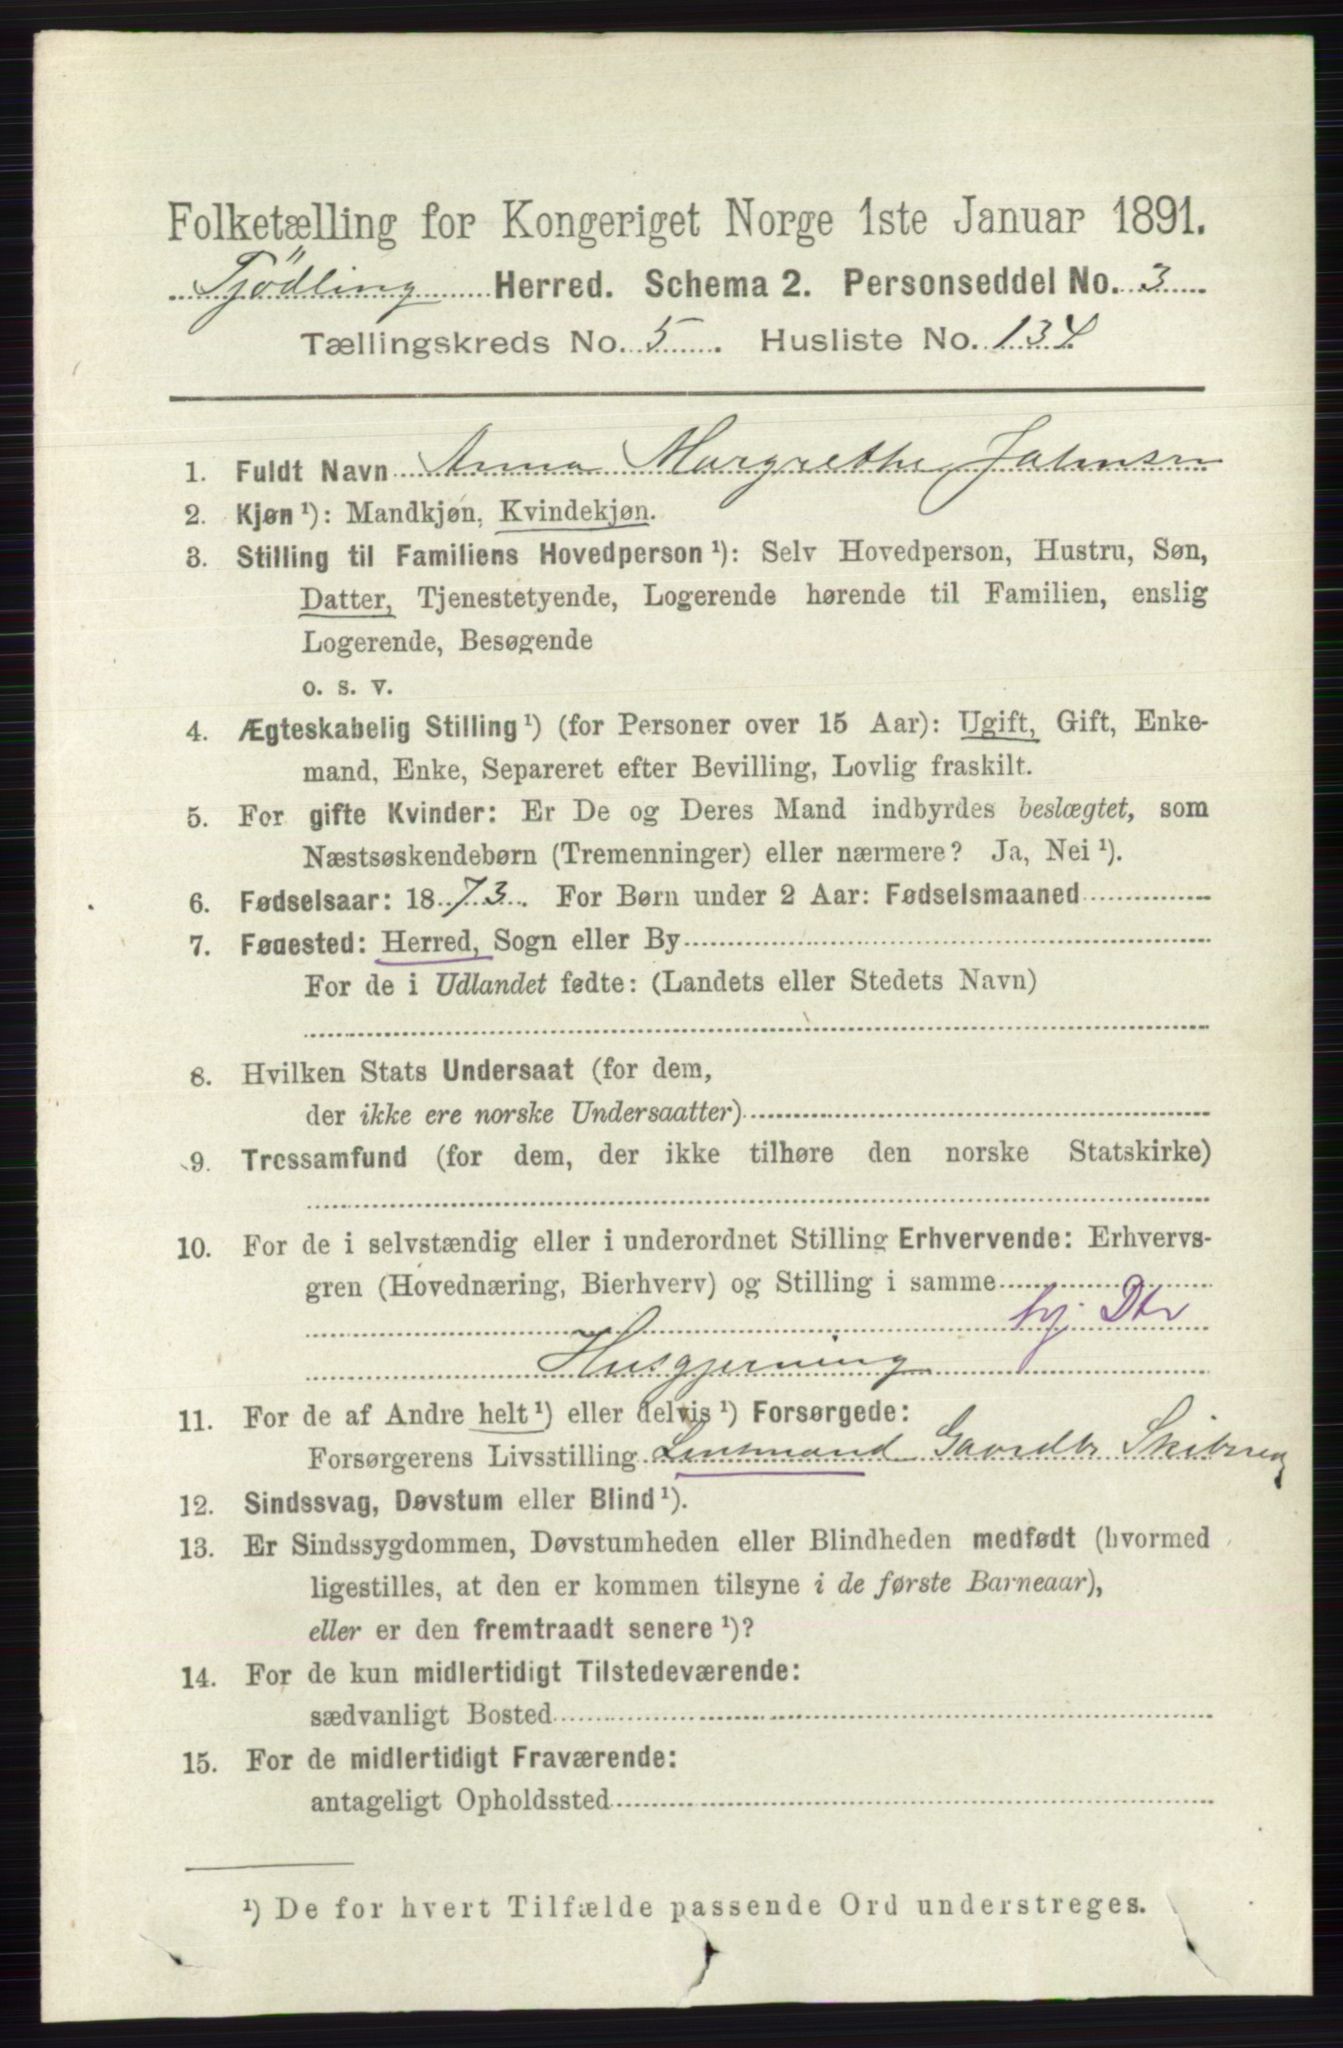 Folketælling for Kongeriget Norge 1ste Januar 1891.
Tjødling Herred. Schema 2. Personseddel No. 3
Tællingskreds No. 5. Husliste No. 134
1. Fuldt Navn Anna Margrethe Johnsen
2. Kjøn ¹): Mandkjøn, Kvindekjøn.
3. Stilling til Familiens Hovedperson ¹): Selv Hovedperson, Hustru, Søn,
Datter, Tjenestetyende, Logerende hørende til Familien, enslig
Logerende, Besøgende
o. s. v.
4. Ægteskabelig Stilling ¹) (for Personer over 15 Aar): Ugift, Gift, Enke-
mand, Enke, Separeret efter Bevilling, Lovlig fraskilt.
5. For gifte Kvinder: Er De og Deres Mand indbyrdes beslægtet, som
Næstsøskendebørn (Tremenninger) eller nærmere? Ja, Nei ¹).
6. Fødselsaar: 1873. For Børn under 2 Aar: Fødselsmaaned
7. Føuested: Herred, Sogn eller By
For de i Udlandet fødte: (Landets eller Stedets Navn)
8. Hvilken Stats Undersaat (for dem,
der ikke ere norske Undersaatter)
9. Trossamfund (for dem, der ikke tilhøre den norske Statskirke)
10. For de i selvstændig eller i underordnet Stilling Erhvervende: Erhvervs-
gren (Hovednæring, Bierhverv) og Stilling i samme
hj. Dtr
Husgjerning
11. For de af Andre helt ¹) eller delvis ¹) Forsørgede:
Forsørgerens Livsstilling Lensmand Gaardbr
12. Sindssvag, Døvstum eller Blind ¹).
13. Er Sindssygdommen, Døvstumheden eller Blindheden medfødt (hvormed
ligestilles, at den er kommen tilsyne i de første Barneaar),
eller er den fremtraadt senere ¹)?
14. For de kun midlertidigt Tilstedeværende:
sædvanligt Bosted
15. For de midlertidigt Fraværende:
antageligt Opholdssted
¹) De for hvert Tilfælde passende Ord understreges.